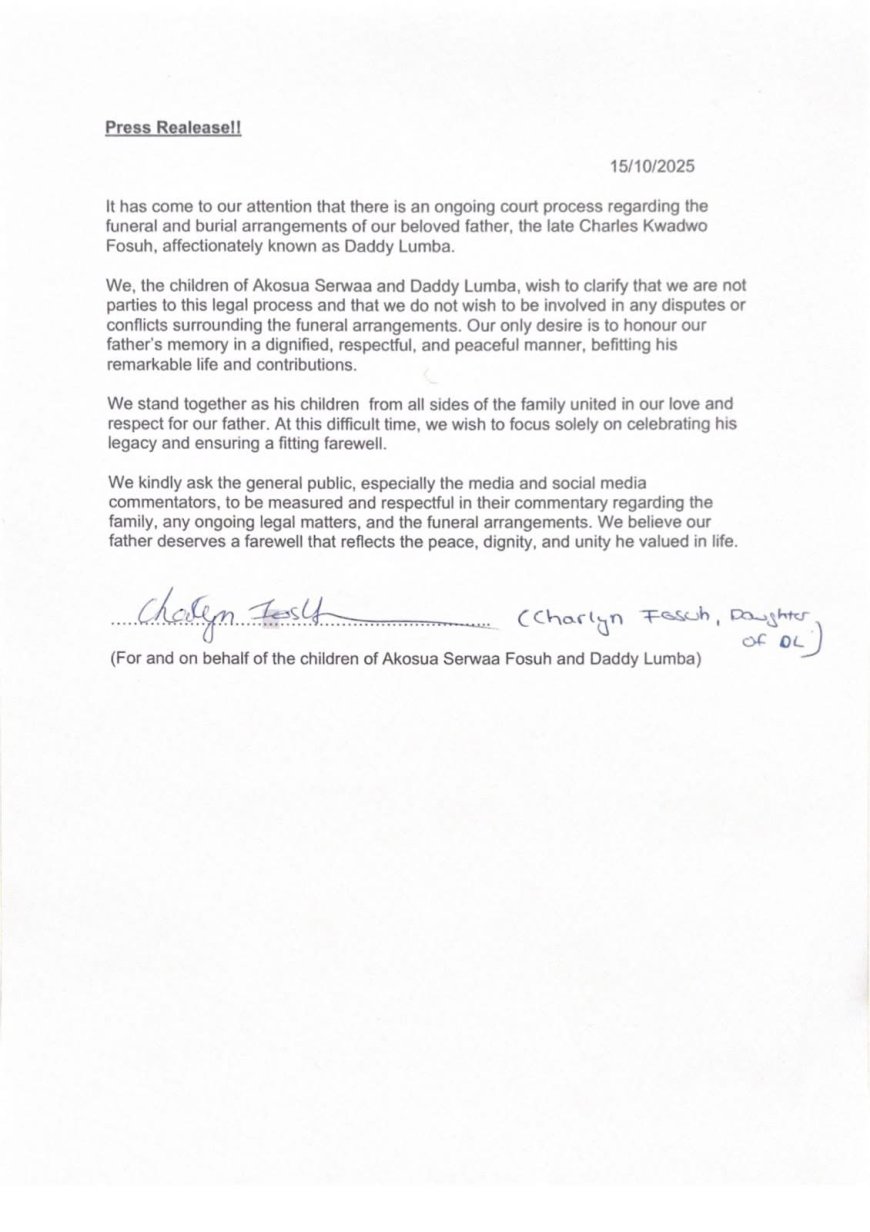 Press Realease!!
15/10/2025
It has come to our attention that there is an ongoing court process regarding the
funeral and burial arrangements of our beloved father, the late Charles Kwadwo
Fosuh, affectionately known as Daddy Lumba.
We, the children of Akosua Serwaa and Daddy Lumba, wish to clarify that we are not
parties to this legal process and that we do not wish to be involved in any disputes or
conflicts surrounding the funeral arrangements. Our only desire is to honour our
father's memory in a dignified, respectful, and peaceful manner, befitting his
remarkable life and contributions.
We stand together as his children  from all sides of the family united in our love and
respect for our father. At this difficult time, we wish to focus solely on celebrating his
legacy and ensuring a fitting farewell.
We kindly ask the general public, especially the media and social media
commentators, to be measured and respectful in their commentary regarding the
family, any ongoing legal matters, and the funeral arrangements. We believe our
father deserves a farewell that reflects the peace, dignity, and unity he valued in life.
(Charlyn Fosuh, Daughter
of DL)
(For and on behalf of the children of Akosua Serwaa Fosuh and Daddy Lumba)